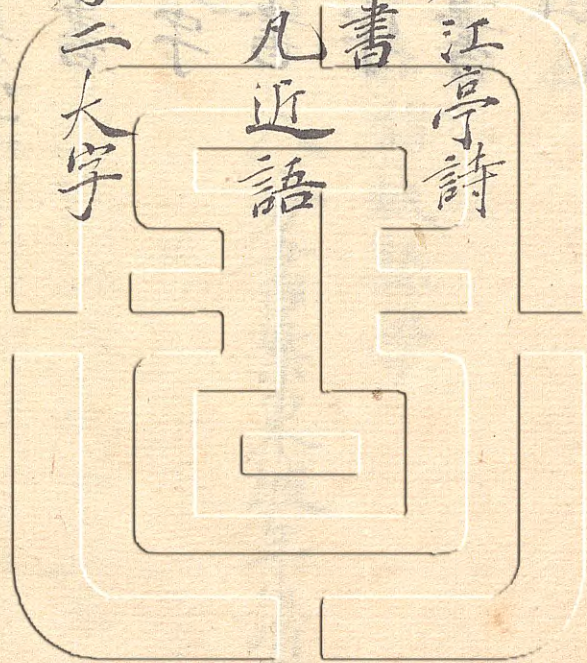 江亭詩
書
凡近語
二大字